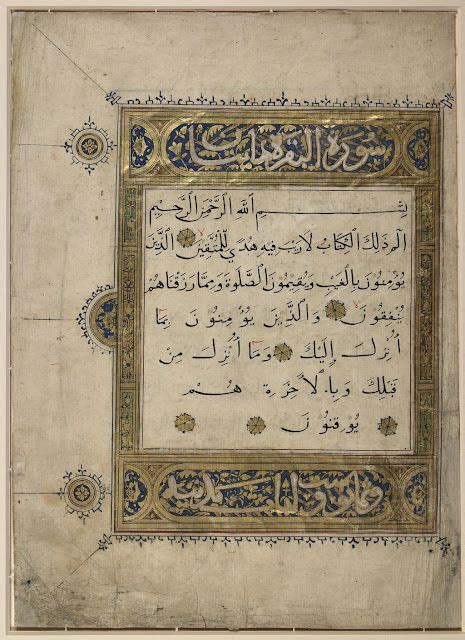 سورة البقرة مايتان
بسم الله الرحمن الرحيم
الم ذلك الكتاب لا ريب فيه هدى للمتقين الذين
يؤمنون بالغيب ويقيمون الصلوة ومما رزقناهم
ينفقون والذين يؤمنون بما
أنزل إليك وما أنزل من
قبلك وبالآخرة هم
يوقنون
وثمانون وست مدنية